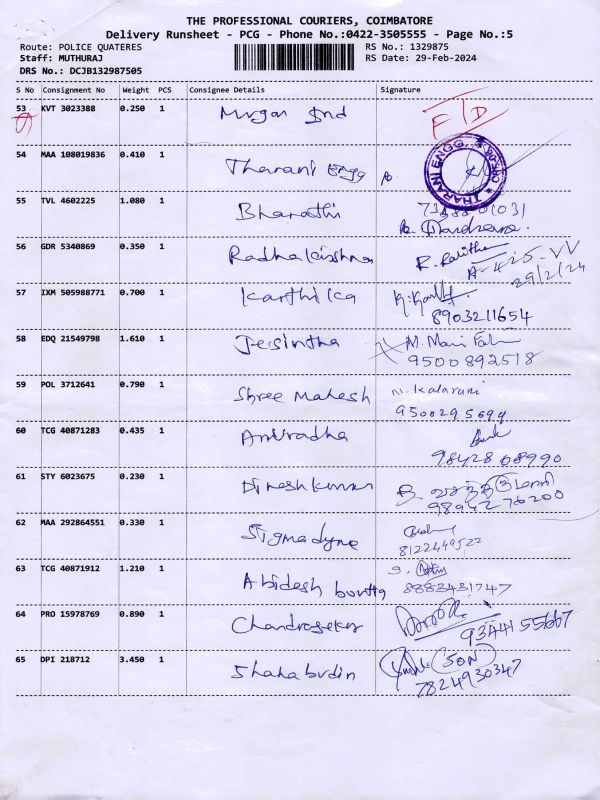 THE PROFESSIONAL COURIERS, COIMBATORE
Delivery Runsheet - PCG - Phone No.:0422-3505555 - Page No.:5
Route: POLICE QUATERES RS No.: 1329875
Staff: MUTHURAJ RS Date: 29-Feb-2024
DRS No.: DCJB132987505
S No Consignment No Weight PCS Consignee Details Signature
53 KVT 3023388 0.250 1 Murgan Ind F/D
54 MAA 108019836 0.410 1 Tharani Engg
THARANI ENGG.
55 TVL 4602225 1.080 1 Bharathi
56 GDR 5340869 0.350 1 Radhakrishnan R. Ralitha
A-425-VV
29/2/24
57 IXM 505988771 0.700 1 Karthika
8903211654
58 EDQ 21549798 1.610 1 Jesintha
9500892518
59 POL 3712641 0.790 1 Shree Mahesh M. Kalarani
9500295694
60 TCG 40871283 0.435 1 Anuradha
9842808990
61 STY 6023675 0.230 1 Dineshkumar
9894276200
62 MAA 292864551 0.330 1 Sigmadyne
8122449522
63 TCG 40871912 1.210 1 Abidesh
8883431747
64 PRO 15978769 0.890 1 Chandrasekar
9344155667
65 DPI 218712 3.450 1 Shahabudin (SON)
7824930347